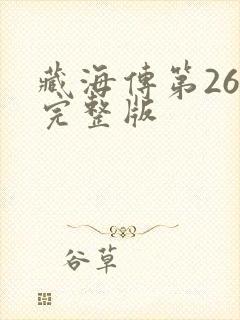 藏海傳第26
完整版
谷草